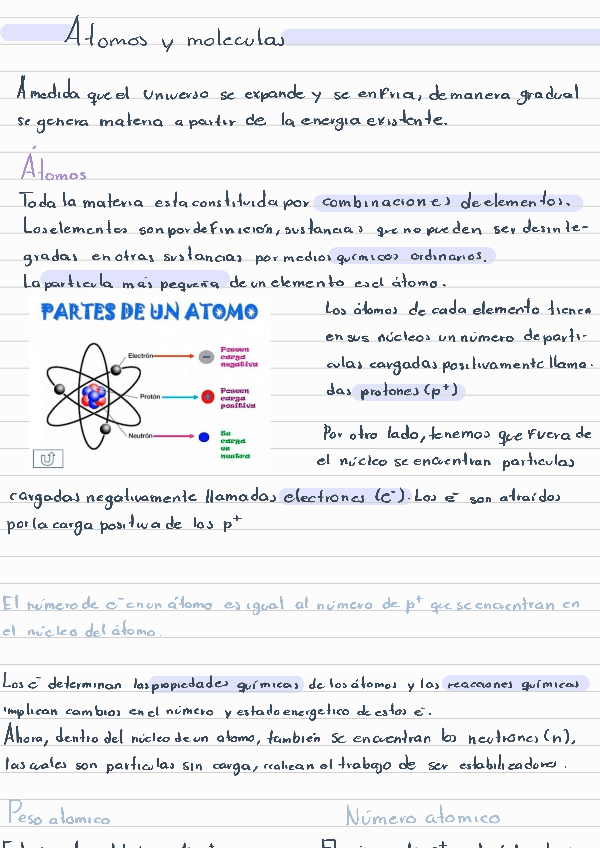 Atomos y moleculas
A medida que el Universo se expande y se enfria, de manera gradual
se genera materia a partir de la energia existente.
Átomos
Toda la materia esta constituida por combinaciones de elementos.
Los elementos son por definición, sustancias que no pueden ser desinte-
gradas en otras sustancias por medios químicos ordinarios.
La particula más pequeña de un elemento es el átomo.
PARTES DE UN ATOMO
Electrón
Poseen
carga
negativa
Protón
Poseen
carga
positiva
Neutrón
Su
carga
es
neutra
Los átomos de cada elemento tienen
en sus núcleos un número de parti-
culas cargadas positivamente llama-
das protones (p+)
Por otro lado, tenemos que fuera de
el núcleo se encuentran particulas
cargadas negativamente llamadas electrones (e-). Los e- son atraídos
por la carga positiva de los p+
El número de e- en un átomo es igual al número de p+ que se encuentran en
el núcleo del átomo.
Los e- determinan las propiedades químicas de los átomos y las reacciones químicas
implican cambios en el número y estado energetico de estos e-.
Ahora, dentro del núcleo de un atomo, también se encuentran los neutrones (n),
las cuales son particulas sin carga, realizan el trabajo de ser estabilizadores.
Peso atomico
Número atomico